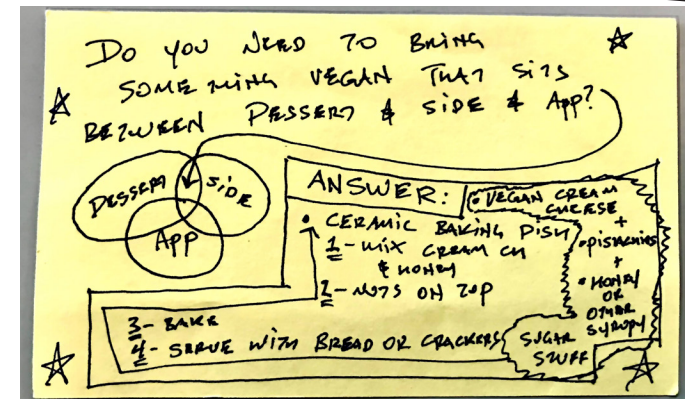 DO YOU NEED TO BRING
SOMETHING VEGAN THAT SITS
BETWEEN DESSERT & SIDE & APP?
DESSERT
SIDE
APP
ANSWER:
• CERAMIC BAKING DISH
1- MIX CREAM CH
& HONEY
2- NUTS ON TOP
3- BAKE
4- SERVE WITH BREAD OR CRACKERS
• VEGAN CREAM
CHEESE
+
• PISTACHIOS
+
• HONEY
OR
OTHER
SYRUPY
SUGAR
STUFF